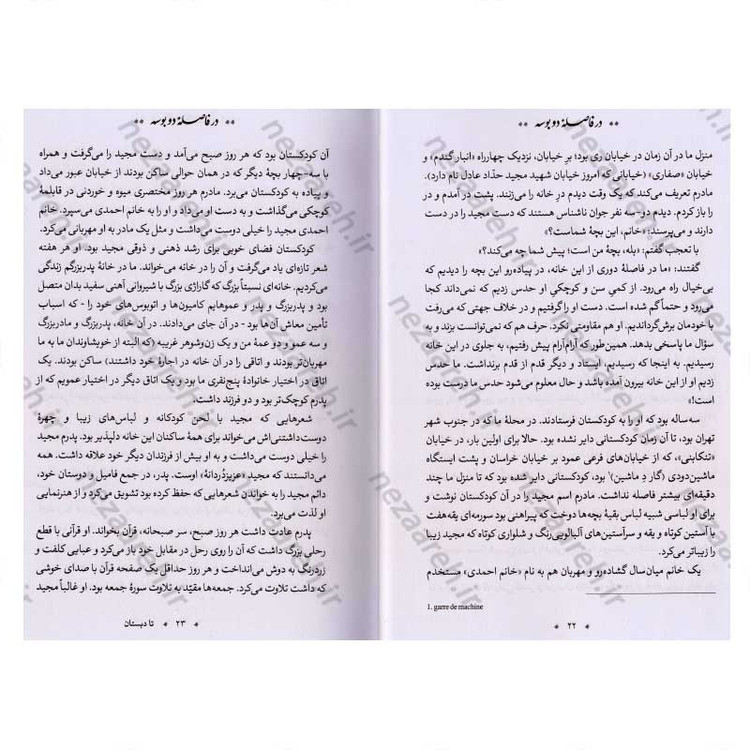 در فاصلهٔ دو بوسه
منزل ما در آن زمان در خیابان ری بود؛ برِ خیابان، نزدیک چهارراه «انبار گندم» و
خیابان «صفاری» (خیابانی که امروز خیابان شهید مجید حدّاد عادل نام دارد).
مادرم تعریف می‌کند که یک وقت دیدم درِ خانه را می‌زنند. پشت در آمدم و در
را باز کردم. دیدم دو-سه نفر جوان ناشناس هستند که دست مجید را در دست
دارند و می‌پرسند: «خانم، این بچهٔ شماست؟»
با تعجب گفتم: «بله، بچهٔ من است؛ پیش شما چه می‌کند؟»
گفتند: «ما در فاصلهٔ دوری از این خانه، در پیاده‌رو این بچه را دیدیم که
بی‌خیال راه می‌رود. از کمی سن و کوچکیِ او حدس زدیم که نمی‌داند کجا
می‌رود و حتماً گم شده است. دست او را گرفتیم و در خلاف جهتی که می‌رفت
با خودمان برش گرداندیم. او هم مقاومتی نکرد. حرف هم که نمی‌توانست بزند و به
سؤال ما پاسخی بدهد. همین‌طور که آرام‌آرام پیش رفتیم، به جلوی در این خانه
رسیدیم. به اینجا که رسیدیم، ایستاد و دیگر قدم از قدم برنداشت. ما حدس
زدیم او از این خانه بیرون آمده باشد و حال معلوم می‌شود حدس ما درست بوده
است!»
سه‌ساله بود که او را به کودکستان فرستادند. در محلهٔ ما که در جنوب شهر
تهران بود، تا آن زمان کودکستانی دایر نشده بود. حالا برای اولین بار، در خیابان
«تنکابنی»، که از خیابان‌های فرعی عمود بر خیابان خراسان و پشت ایستگاه
ماشین‌دودی (گارِ دِ ماشین)۱ بود، کودکستانی دایر شده بود که تا منزل ما چند
دقیقه‌ای بیشتر فاصله نداشت. مادرم اسم مجید را در آن کودکستان نوشت و
برای او لباسی شبیه لباس بقیهٔ بچه‌ها دوخت که پیراهنی بود سورمه‌ای یقه‌هفت
با آستین کوتاه و یقه و سرآستین‌های آلبالویی‌رنگ و شلواری کوتاه که مجید زیبا
را زیباتر می‌کرد.
یک خانم میان‌سال گشاده‌رو و مهربان هم به نام «خانم احمدی» مستخدم
1. garre de machine
۲۲
در فاصلهٔ دو بوسه
آن کودکستان بود که هر روز صبح می‌آمد و دست مجید را می‌گرفت و همراه
با سه-چهار بچهٔ دیگر که در همان حوالی ساکن بودند از خیابان عبور می‌داد
و پیاده به کودکستان می‌برد. مادرم هر روز مختصری میوه و خوردنی در قابلمهٔ
کوچکی می‌گذاشت و به دست او می‌داد و او را به خانم احمدی می‌سپرد. خانم
احمدی مجید را خیلی دوست می‌داشت و مثل یک مادر به او مهربانی می‌کرد.
کودکستان فضای خوبی برای رشد ذهنی و ذوقی مجید بود. او هر هفته
شعر تازه‌ای یاد می‌گرفت و آن را در خانه می‌خواند. ما در خانهٔ پدربزرگم زندگی
می‌کردیم. خانه‌ای نسبتاً بزرگ که گاراژی بزرگ با شیروانی آهنی سفید بدان متصل
بود و پدربزرگ و پدر و عموهایم کامیون‌ها و اتوبوس‌های خود را - که اسباب
تأمین معاش آن‌ها بود - در آن جای می‌دادند. در آن خانه، پدربزرگ و مادربزرگ
و سه عمو و دو عمهٔ من و یک زن‌وشوهر غریبه (البته از خویشاوندان ما به ما
مهربان‌تر بودند و اتاقی را در آن خانه در اجارهٔ خود داشتند) ساکن بودند. یک
اتاق در اختیار خانوادهٔ پنج‌نفری ما بود و یک اتاق دیگر در اختیار عمویم که از
پدرم کوچک‌تر بود و دو فرزند داشت.
شعرهایی که مجید با لحن کودکانه و لباس‌های زیبا و چهرهٔ
دوست‌داشتنی‌اش می‌خواند برای همهٔ ساکنان این خانه دلپذیر بود. پدرم مجید
را خیلی دوست می‌داشت و به او بیش از فرزندان دیگر خود علاقه داشت. همه
می‌دانستند که مجید «عزیزدُردانهٔ» اوست. پدر، در جمع فامیل و دوستان خود،
دائم مجید را به خواندن شعرهایی که حفظ کرده بود تشویق می‌کرد و از هنرنمایی
او لذت می‌برد.
پدرم عادت داشت هر روز صبح، سر صبحانه، قرآن بخواند. او قرآنی با قطع
رحلی بزرگ داشت که آن را روی رحل در مقابل خود باز می‌کرد و عبایی کلفت و
زردرنگ به دوش می‌انداخت و هر روز حداقل یک صفحه قرآن با صدای خوشی
که داشت تلاوت می‌کرد. جمعه‌ها مقیّد به تلاوت سورهٔ جمعه بود. او غالباً مجید
۲۳ تا دبستان
nezaareh.ir